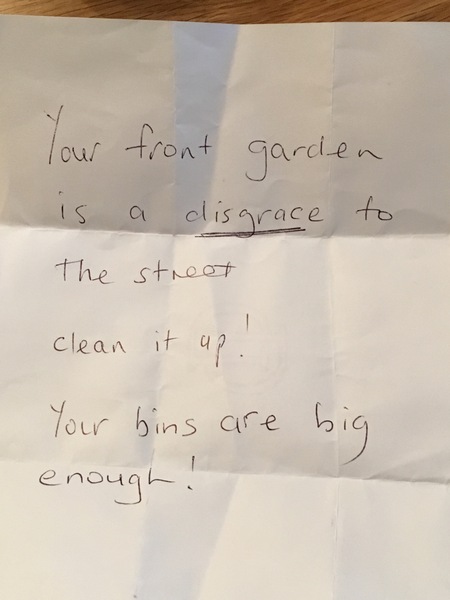 Your front garden
is a disgrace to
the street
clean it up!
Your bins are big
enough!